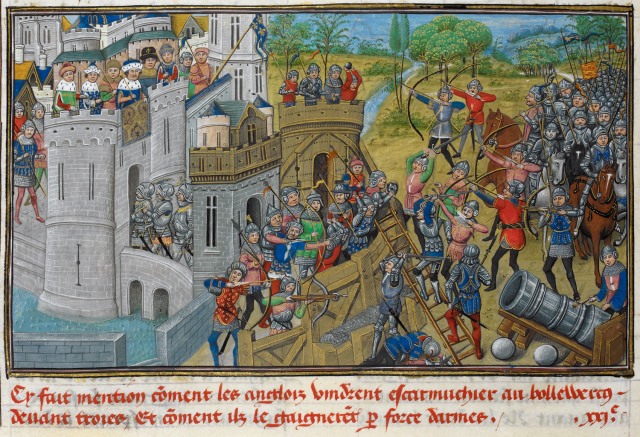 Cy fait mention cõment les anglois vindrent escarmuchier au bollewercq
deuant troies. Et cõment ilz le gaignerẽt p force darmes. .xxj.ͤ